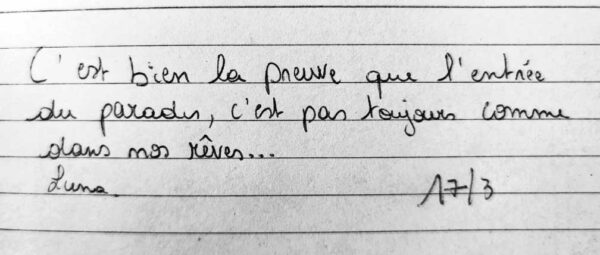 C'est bien la preuve que l'entrée
du paradis, c'est pas toujours comme
dans nos rêves...
Luna. 17/3